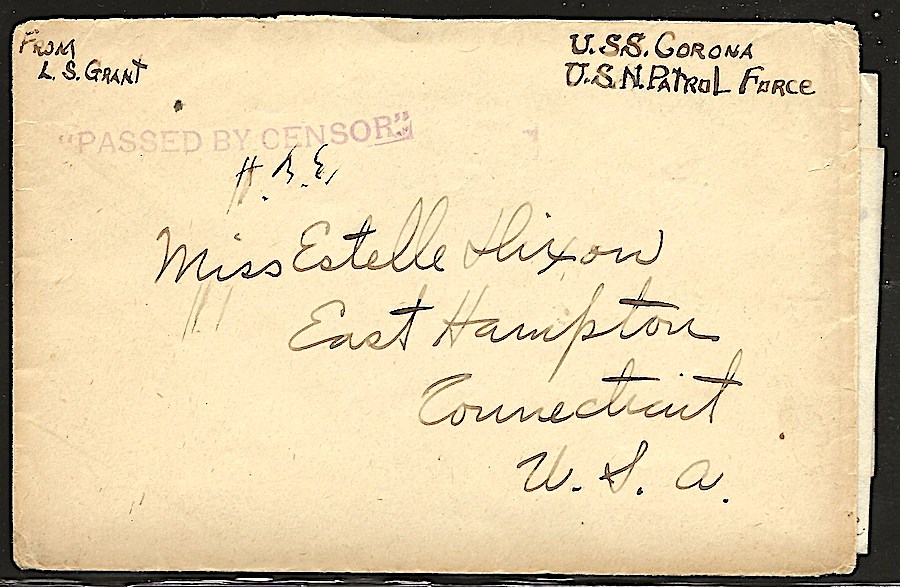 From
L. S. Grant
U.S.S. Corona
U.S.N. Patrol Force
"PASSED BY CENSOR"
H. B. E.
Miss Estelle Hixon
East Hampton
Connecticut
U. S. A.